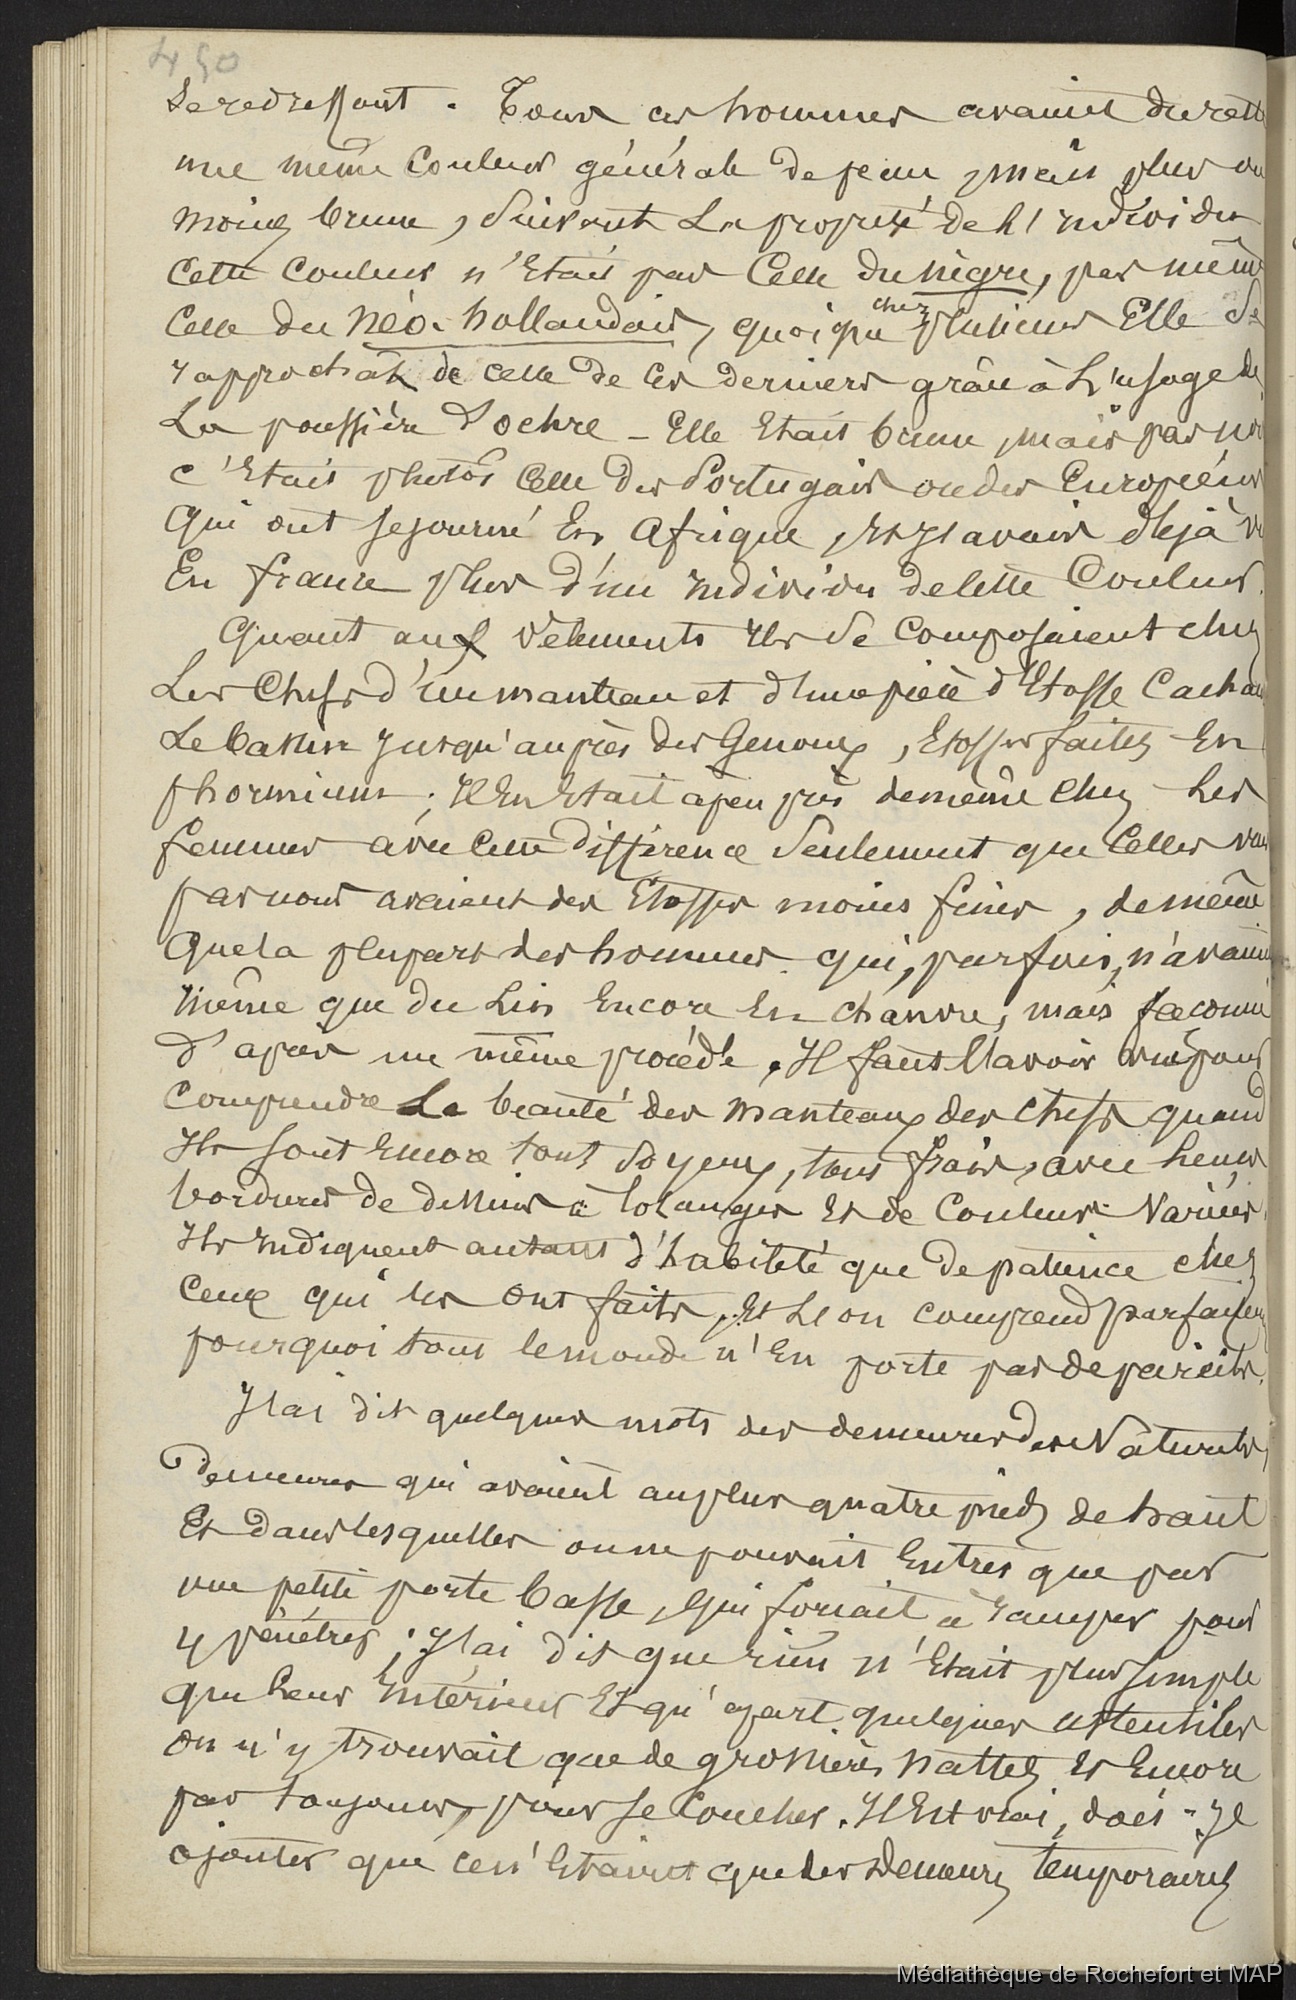 450
se redressant. Tous ces hommes avaient du reste
une même couleur générale de peau, mais plus ou
moins brune, suivant la propreté de l'individu
Cette couleur n'était pas celle du nègre, pas même
celle du Néo-hollandais, quoique chez plusieurs Elle se
rapprochât de celle de ces derniers grâce à l'usage de
La poussière d'ochre - Elle Etait brune, mais pas noi
c'Etait plutôt celle des Portugais ou des Européens
qui ont séjourné En Afrique, et j'avais déjà vu
En france plus d'un individu de cette Couleur.
Quant aux vêtements ils se composaient chez
Les Chefs d'un manteau et d'une pièce d'Etoffe cachan
Le bassin jusqu'auprès des Genoux, Etoffes faites En
phormium ; Il En Etait à peu près de même chez Les
femmes avec cette différence seulement que celles vues
par nous avaient des Etoffes moins fines, de même
que la plupart des hommes qui, parfois, n'avaient
même que du Lin Encore En chanvre, mais façonné
d'après un même procédé. Il faut l'avoir vu pour
comprendre La beauté des manteaux des chefs quand
Ils sont Encore tout soyeux, tous frais, avec Leurs
bordures de dessins à losanges Et de Couleurs Variées.
Ils indiquent autant d'habileté que de patience chez
Ceux qui les ont faits, Et L'on comprend parfaitem
pourquoi tout le monde n'En porte pas de pareils.
J'ai dit quelques mots des demeures des Naturels,
Demeures qui avaient au plus quatre pieds de haut
Et dans lesquelles on ne pouvait Entrer que par
une petite porte basse, qui forçait à ramper pour
y pénétrer ; J'ai dit que rien n'Etait plus simple
que Leur Intérieur Et qu'apart quelques ustensiles
on n'y trouvait que de grossières nattes Et Encore
pas toujours, pour se coucher. Il Est vrai, dois-Je
ajouter que ce n'Etaient que des Demeures temporaires
Médiathèque de Rochefort et MAP